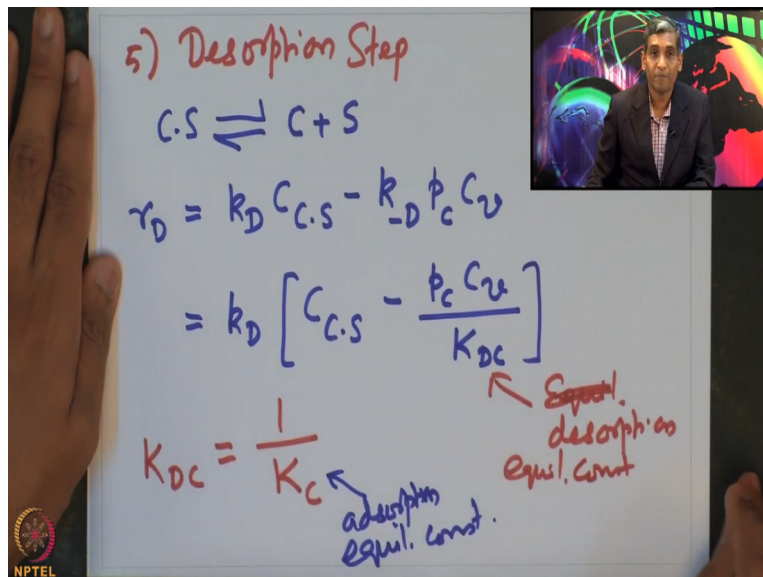 5) Desorption Step
C.S ⇌ C + S
r_D = k_D C_C.S - k_-D p_C C_v
= k_D [ C_C.S - p_C C_v / K_DC ]
Equil.
desorption
equil. const
K_DC = 1 / K_C
adsorption
equil. const.
NPTEL